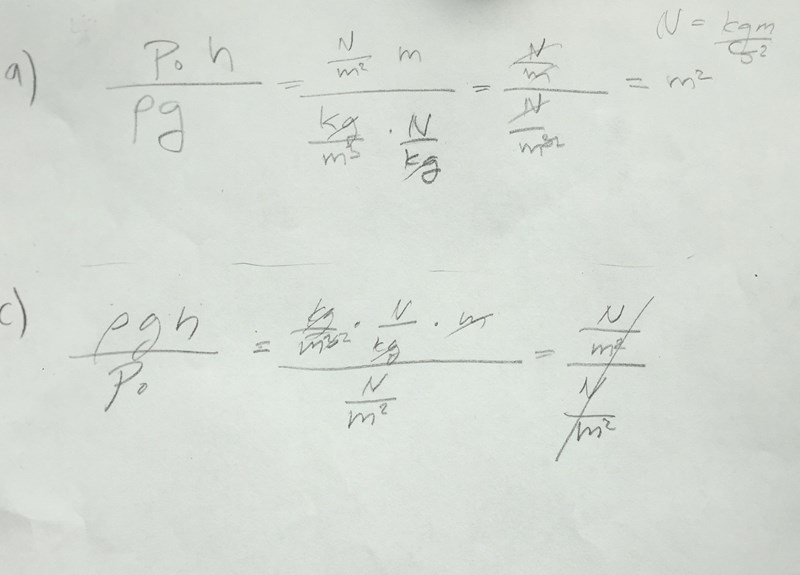 N = kgm/s²
a) P₀ h / ρg = N/m² m / kg/m³ · N/kg = N/m / N/m³² = m²
c) ρgh / P₀ = kg/m³² · N/kg · m / N/m² = N/m² / N/m²